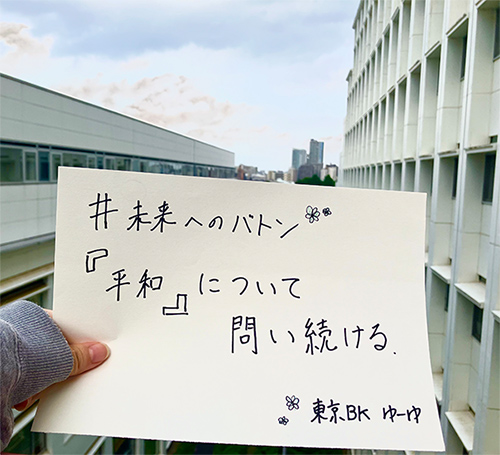 #未来へのバトン
『平和』について
問い続ける.
東京BK ゆーゆ